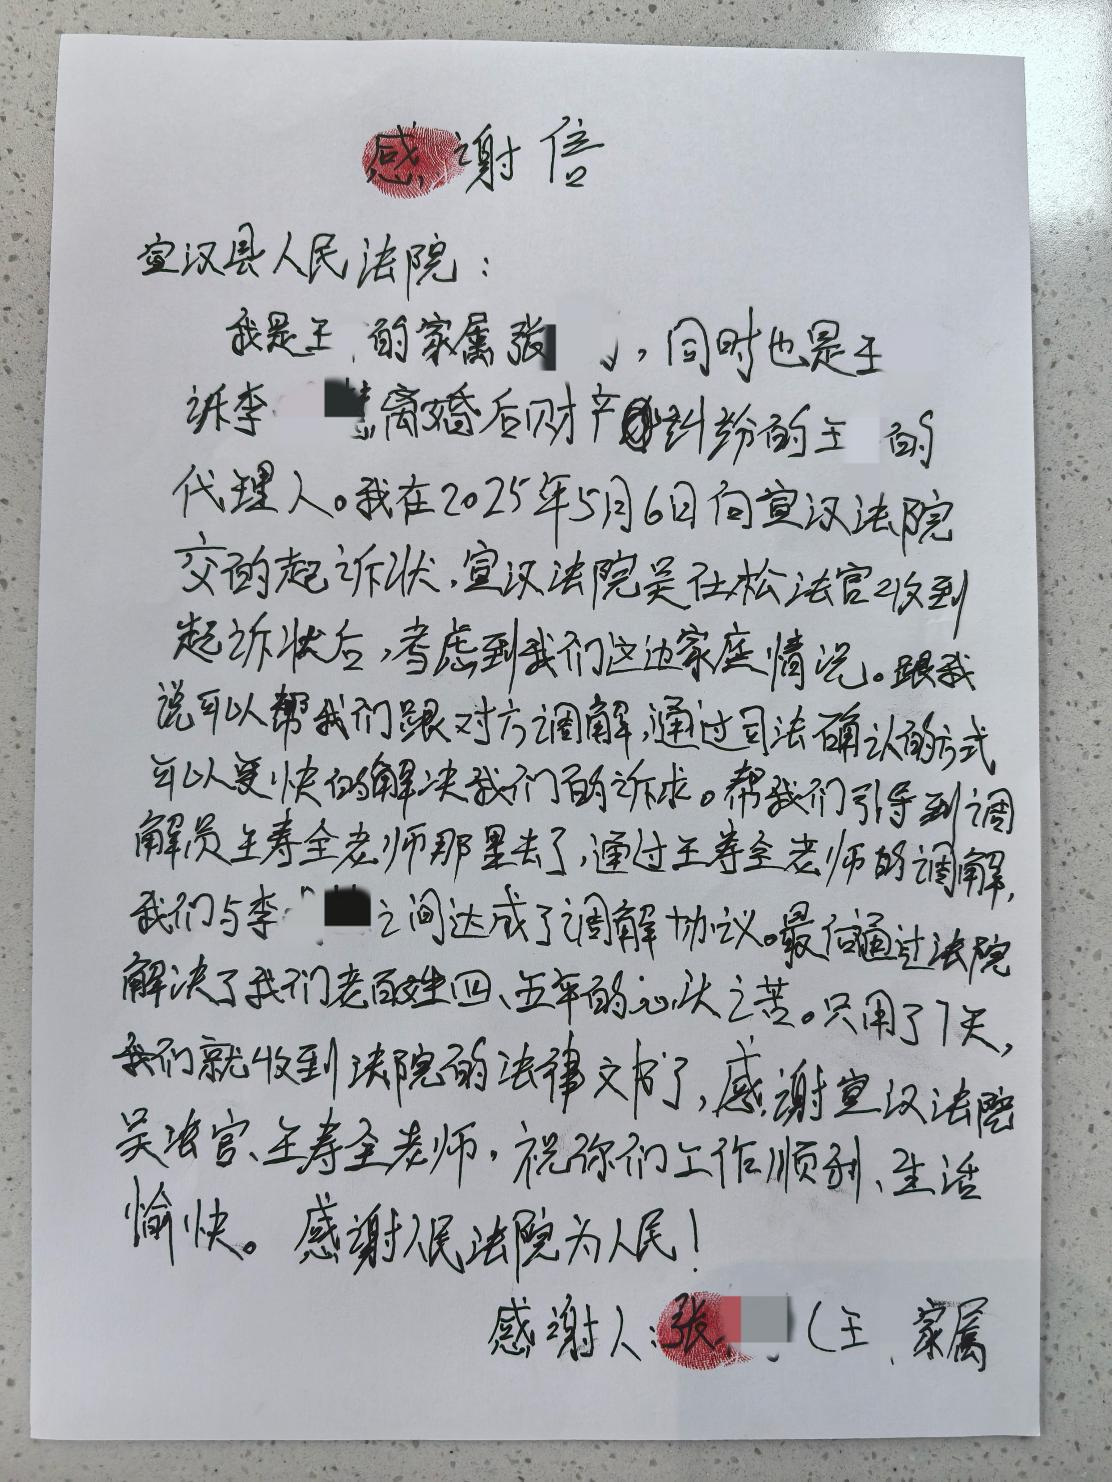 感谢信
宣汉县人民法院：
我是王 的家属张 ，同时也是王
诉李 离婚后财产纠纷的王 的
代理人。我在2025年5月6日向宣汉法院
交的起诉状，宣汉法院吴仕松法官收到
起诉状后，考虑到我们这边家庭情况。跟我
说可以帮我们跟对方调解，通过司法确认的方式
可以更快的解决我们的诉求。帮我们引导到调
解员王寿全老师那里去了，通过王寿全老师的调解，
我们与李 之间达成了调解协议。最后通过法院
解决了我们老百姓四、五年的心头之苦。只用了7天，
我们就收到法院的法律文书了，感谢宣汉法院
吴法官、王寿全老师，祝你们工作顺利、生活
愉快。感谢人民法院为人民！
感谢人：张 （王 家属